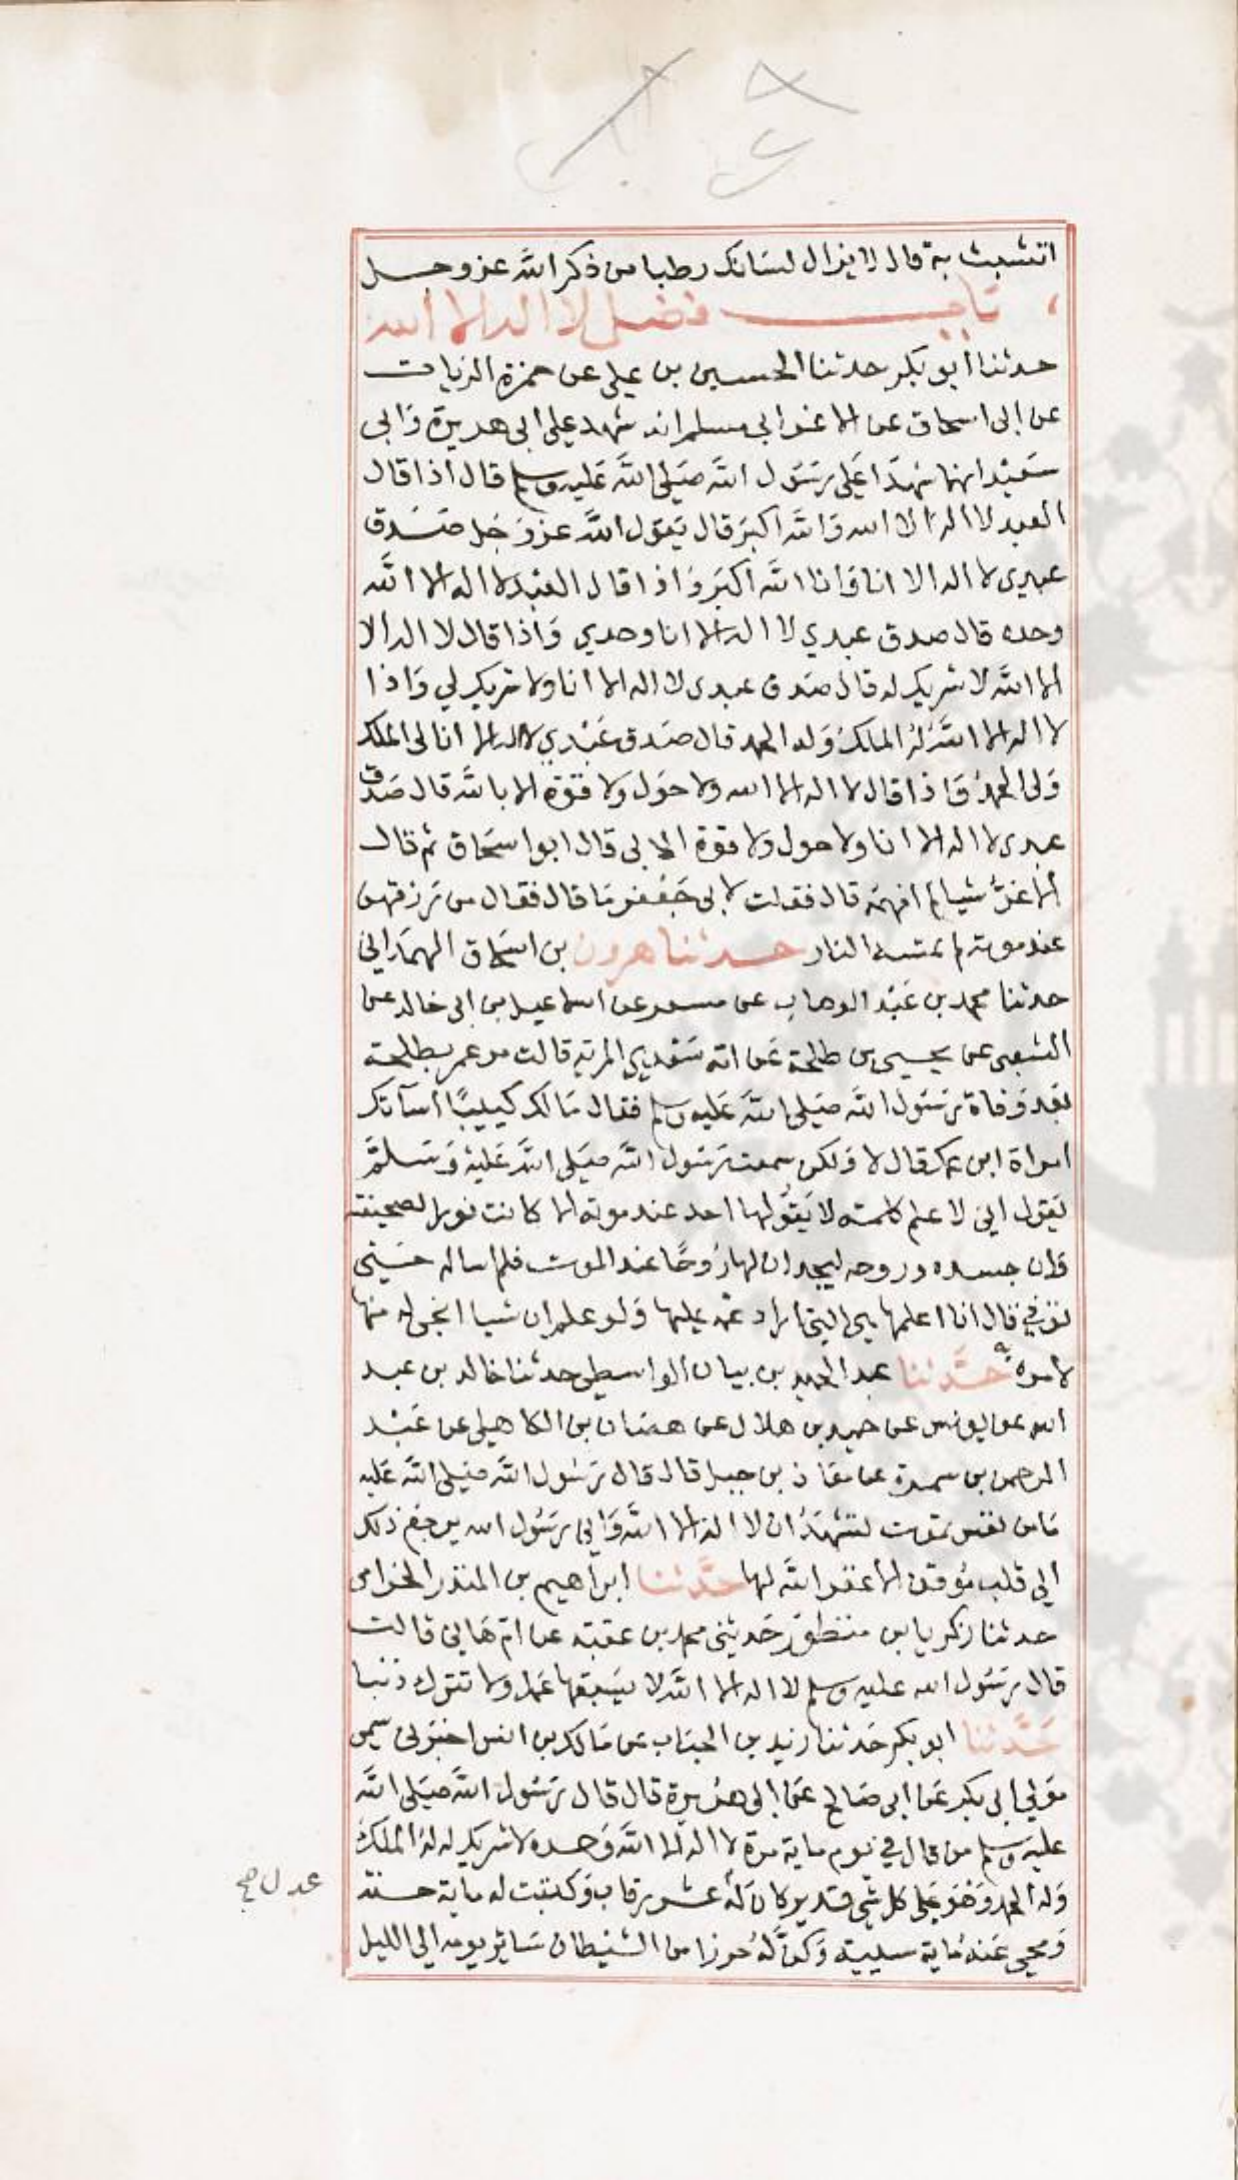 اتشبث به قال لا يزال لسانك رطبا من ذكر الله عز وجل
باب فضل لا اله الا الله
حدثنا ابو بكر حدثنا الحسين بن علي عن حمزة الزيات
عن ابى اسحاق عن الاغر ابي مسلم انه شهد على ابى هريرة وَابى
سَعيْد انهما شهدَا عَلى رسَول الله صَلى الله عَليه وسلم قال اذا قال
العبد لا اله الا الله وَالله اكبرَ قال يَقول الله عز وَجل صَدق
عبدى لا اله الا انا وَانا الله اكبَر وَاذا قال العَبْد لا اله الا الله
وحده قال صدق عبدي لا اله الا انا وحدي وَاذا قال لا اله الا
الا الله لا شريك له قال صَدق عبدى لا اله الا انا ولا شريك لي وَاذا
لا اله الا الله لهُ الملكُ وَله الحمد قال صَدق عَبْدي لا اله الا انا لى الملك
وَلى الحمدُ وَاذا قال لا اله الا الله ولا حوَل وَلا قوّة الا بالله قال صَدق
عبدى لا اله الا انا ولا حول ولا قوة الا بى قال ابو اسحَاق ثم قال
الاغرُّ شيا لم افهمَه قال فقلت لابى جَعْفر مَا قال فقال من رَزقهن
عند موته لم تمسه النار حدثنا هرون بن اسحَاق الهمدَاني
حدثنا محمد بن عَبْد الوهاب عن مسعر عن اسماعيل بن ابى خالد عن
الشعبى عن يحيى بن طلحة عَن امه سَعْدي المرية قالت مر عمر بطلحة
بَعْد وَفاة رسَول الله صَلى الله عَليه وسلم فقال مَالك كييبًا أسآتك
امراة ابن عمك قال لا وَلكن سمعت رسَول الله صَلى الله عَليْه وَسَلمَّ
يَقول اني لا علم كلمته لا يَقوُلها احد عند موته الا كانت نورا لصحيفته
وَان جسده وروحه ليجدان لها رُوحًا عند الموت فلم اساله حَتى
توفي قال انا اعلمها هى التى اراد عمّه عليها وَلو علم ان شيا انجى له منها
لامره حدَّثنا عبد الحميد بن بيان الواسطي حدثنا خالد بن عبد
الله عن يونس عن حميد بن هلال عن هصَان بن الكاهيل عن عَبْد
الرحمن بن سمرة عن معَاذ بن جبل قال قال رسَول الله صَلى الله عَليه
مَا من نفس تموت تشهدُ ان لا اله الا الله وَاني رسَول الله يرجع ذلك
الي قلب مُوقن الا غفر الله لها حدَّثنا ابراهيم بن المنذر الحزامى
حدثنا زكريا بن منظور حَدثنى محمد بن عقبة عن امّ هَاني قالت
قال رسَول الله عليه وسلم لا اله الا الله لا يسَبقها عَمل ولا تترك ذنبا
حَدَّثنا ابو بكر حَدثنا زيد بن الحبَاب عن مَالك بن انس اخبرَنى سمى
موَلي ابى بكر عَن ابى صَالح عَن ابى هرُيرَة قال قال رسَول الله صَلى الله
عليه وسلم من قال في يوم ماية مرة لا اله الا الله وَحده لا شريك له لهُ الملكُ
وَله الحمد وَهوَ عَلى كل شى قدير كانَ لهُ عشر رقاب وَكتبت له ماية حسنة
وَمحى عَنهُ مَاية سيية وَكنَّ لهُ حرزا من الشيْطان سَائر يومه الي الليل
عدل صح